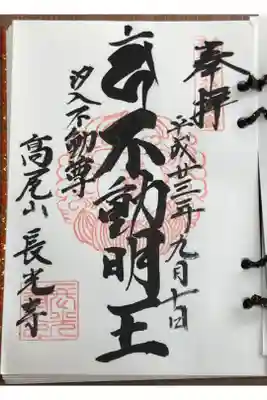 奉拝
平成廿三年九月十日
不動明王
汐入不動尊
高尾山 長光寺